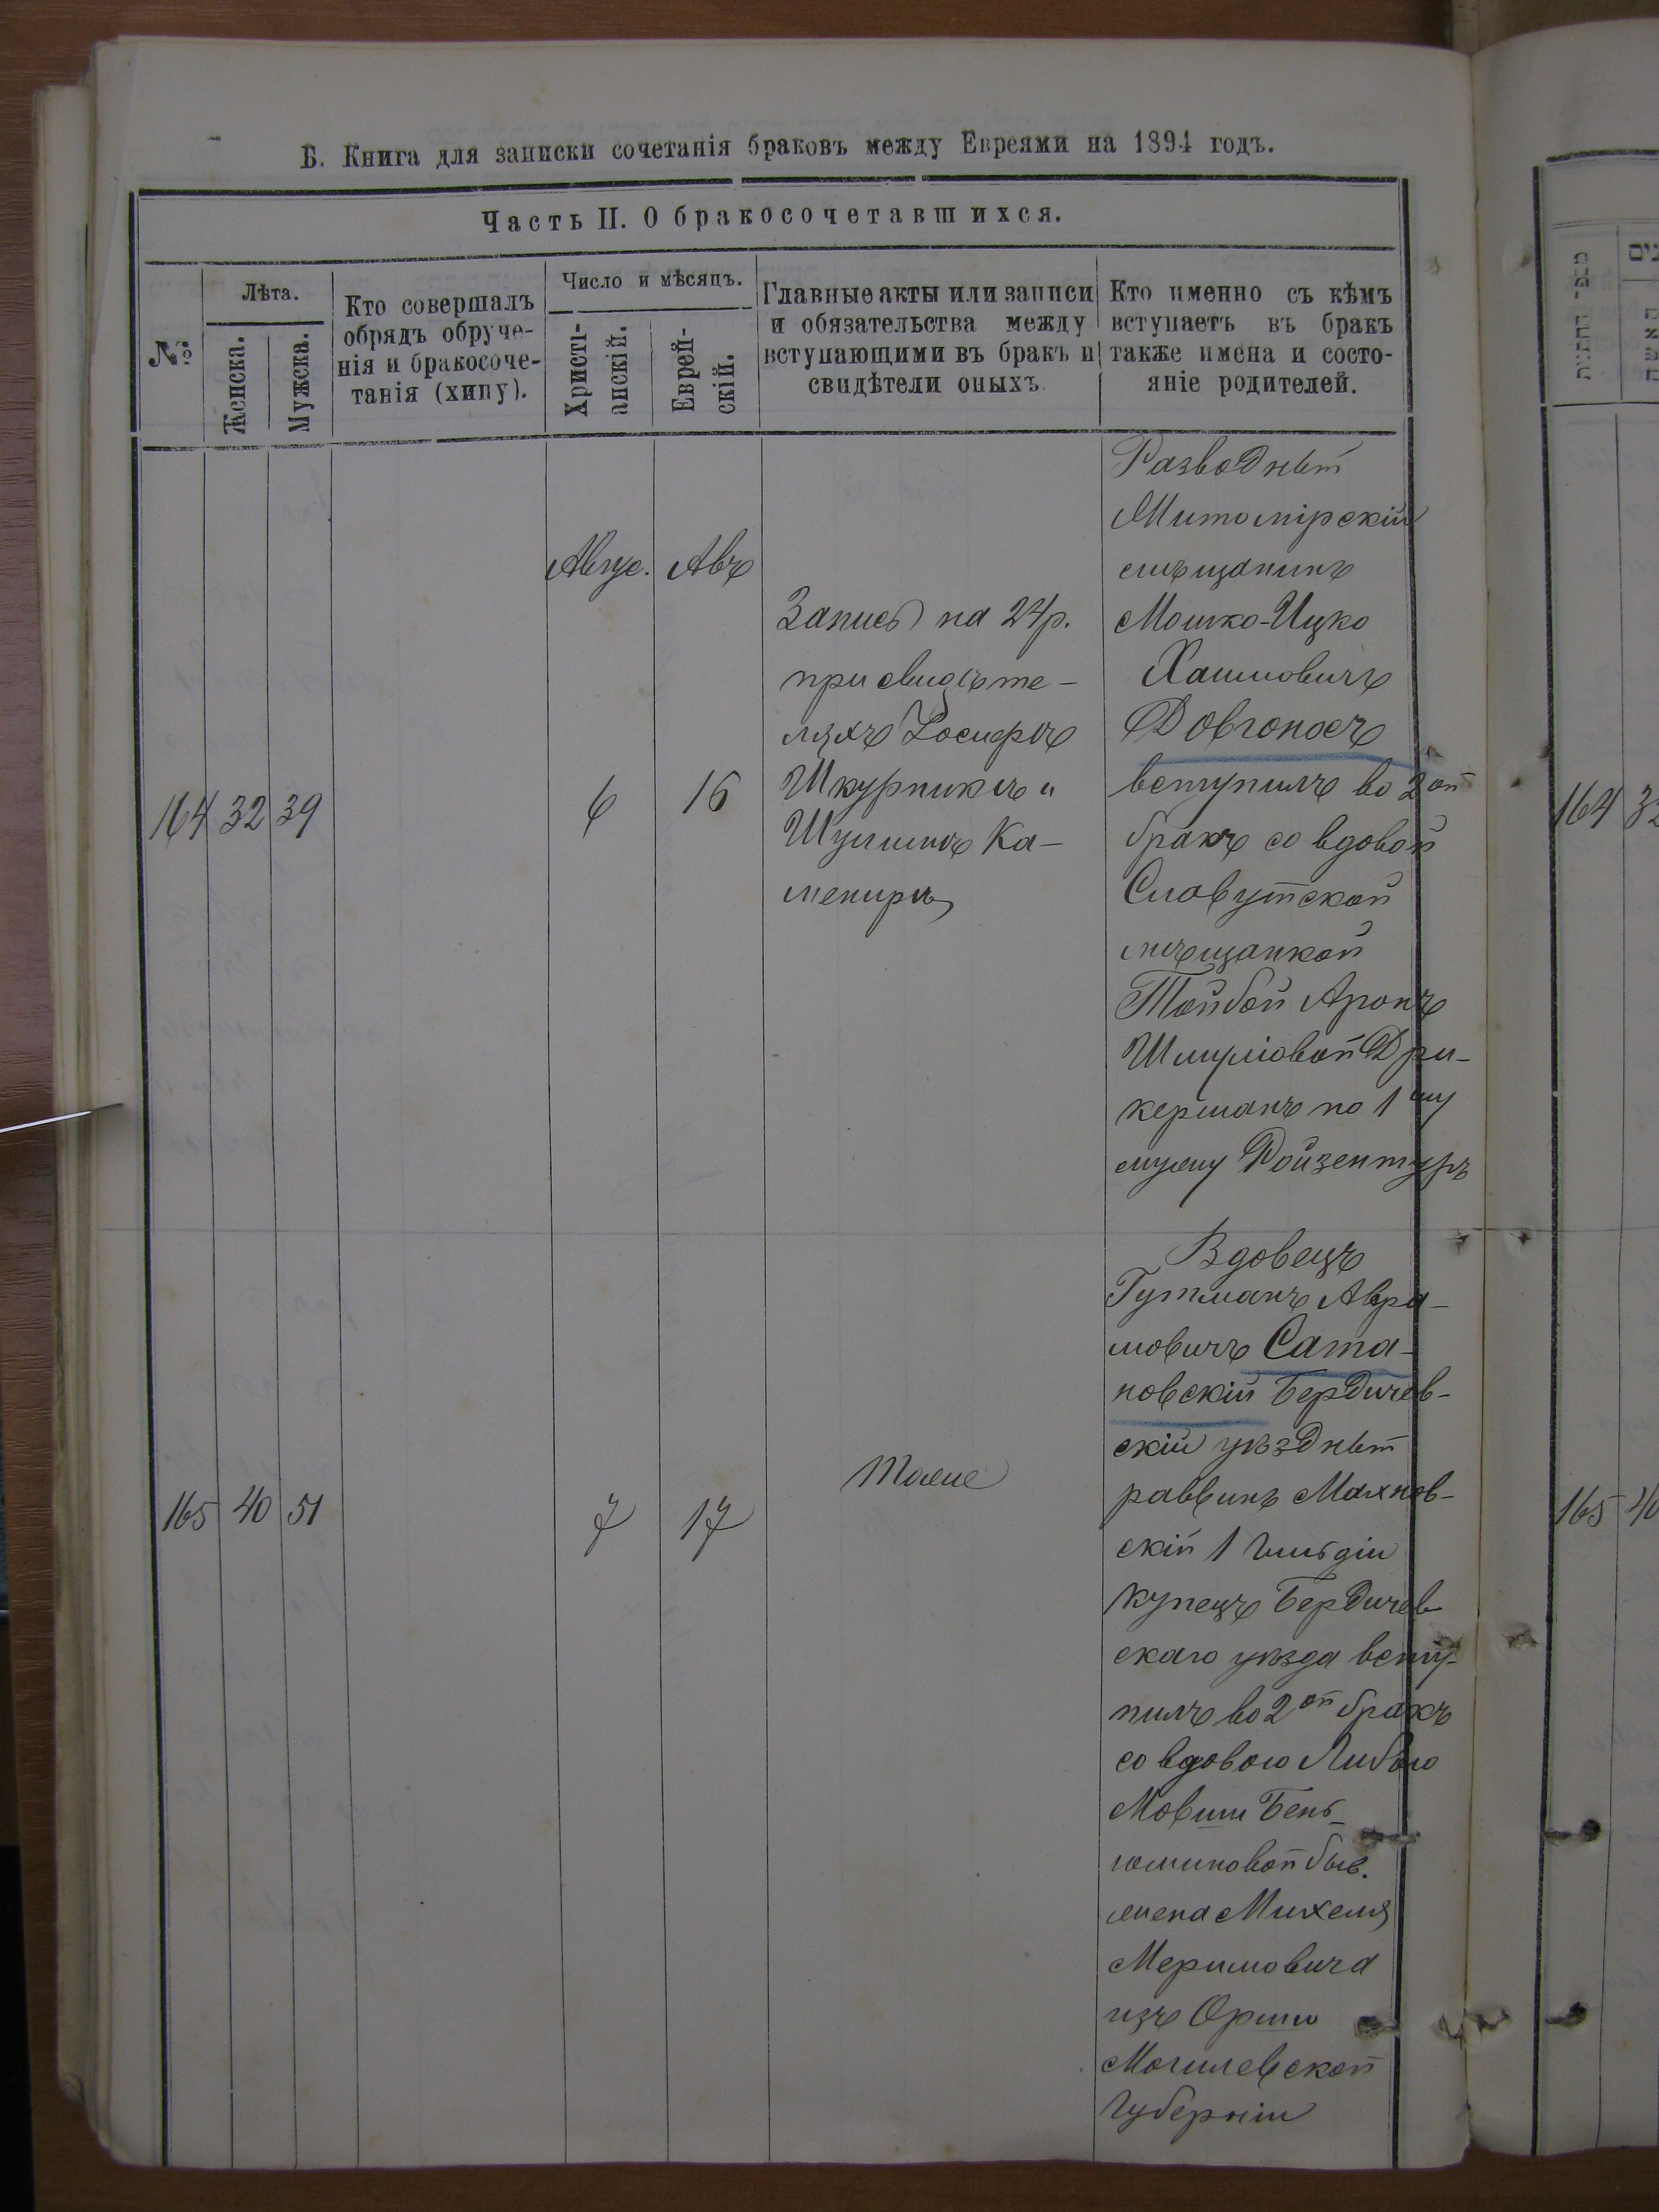 Б. Книга для записки сочетанія браковъ между Евреями на 1894 годъ.
Часть II. О бракосочетавшихся.
№
Лѣта.
Женска.
Мужска.
Кто совершалъ
обрядъ обруче-
нія и бракосоче-
танія (хипу).
Число и мѣсяцъ.
Христі-
анскій.
Еврей-
скій.
Главные акты или записи
и обязательства между
вступающими въ бракъ и
свидѣтели оныхъ
Кто именно съ кѣмъ
вступаетъ въ бракъ
также имена и состо-
яніе родителей.
164 32 39
Авгус. Авъ
6 16
Запись на 24р.
при свидѣте-
ляхъ Іосифѣ
Шкурникѣ и
Шулимѣ Ка-
менирѣ
Разводный
Житомірскій
мѣщанинъ
Мошко-Ицко
Хаимовичъ
Довгоносъ
вступилъ во 2ой
бракъ со вдовой
Славутской
мѣщанкой
Тойбой Аронъ
Шмулiовой Дри-
керманъ по 1му
мужу Ройзентуръ
165 40 51
7 17
Тоже
Вдовецъ
Гутманъ Авра-
мовичъ Сата-
новскій Бердичев-
скій уѣздный
раввинъ Махнов-
скій 1 гильдіи
купецъ Бердичев
скаго уѣзда всту-
пилъ во 2ой бракъ
со вдовою Либою
Мовши Бень-
юминовой быв.
жена Михеля
Меримовича
изъ Орши
Могилевской
губерніи
164 32
165 40